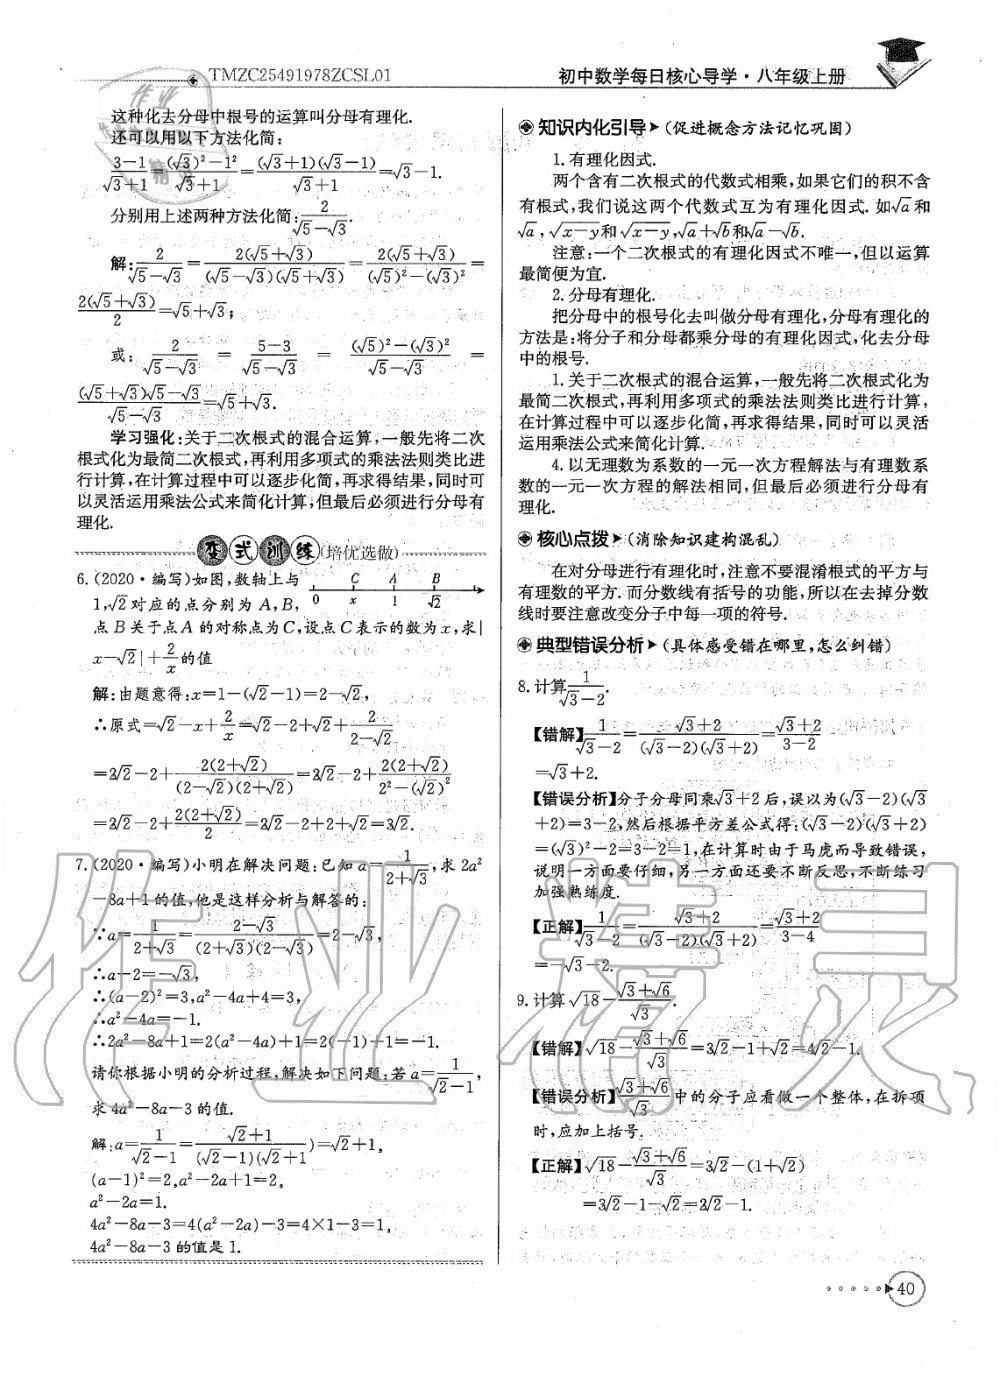 TMZC25491978ZCSL01
初中数学每日核心导学·八年级上册
这种化去分母中根号的运算叫分母有理化.
还可以用以下方法化简:
(3-1)/(√3+1)=((√3)²-1²)/(√3+1)=((√3+1)(√3-1))/(√3+1)=√3-1.
分别用上述两种方法化简:2/(√5-√3).
解:2/(√5-√3)=2(√5+√3)/((√5-√3)(√5+√3))=2(√5+√3)/((√5)²-(√3)²)=
2(√5+√3)/2=√5+√3;
或:2/(√5-√3)=(5-3)/(√5-√3)=((√5)²-(√3)²)/(√5-√3)=
(√5+√3)(√5-√3)/(√5-√3)=√5+√3.
学习强化:关于二次根式的混合运算,一般先将二次
根式化为最简二次根式,再利用多项式的乘法法则类比进
行计算,在计算过程中可以逐步化简,再求得结果,同时可
以灵活运用乘法公式来简化计算,但最后必须进行分母有
理化.
变式训练(培优选做)
6.(2020·编写)如图,数轴上与
1,√2对应的点分别为 A,B,
C A B
0 x 1 √2
点 B 关于点 A 的对称点为 C,设点 C 表示的数为 x,求|
x-√2|+2/x的值
解:由题意得:x=1-(√2-1)=2-√2,
∴原式=√2-x+2/x=√2-2+√2+2/(2-√2)
=2√2-2+2(2+√2)/((2-√2)(2+√2))=2√2-2+2(2+√2)/(2²-(√2)²)
=2√2-2+2(2+√2)/2=2√2-2+2+√2=3√2.
7.(2020·编写)小明在解决问题:已知 a=1/(2+√3),求 2a²
-8a+1 的值,他是这样分析与解答的:
∵a=1/(2+√3)=(2-√3)/((2+√3)(2-√3))=2-√3,
∴a-2=-√3,
∴(a-2)²=3,a²-4a+4=3,
∴a²-4a=-1.
∴2a²-8a+1=2(a²-4a)+1=2(-1)+1=-1.
请你根据小明的分析过程,解决如下问题:若 a=1/(√2-1),
求 4a²-8a-3 的值.
解:a=1/(√2-1)=(√2+1)/((√2-1)(√2+1)=√2+1,
(a-1)²=2,a²-2a+1=2,
a²-2a=1.
4a²-8a-3=4(a²-2a)-3=4×1-3=1,
4a²-8a-3 的值是 1.
知识内化引导(促进概念方法记忆巩固)
1.有理化因式.
两个含有二次根式的代数式相乘,如果它们的积不含
有根式,我们说这两个代数式互为有理化因式.如√a和
√a,√x-y和√x-y,√a+√b和√a-√b.
注意:一个二次根式的有理化因式不唯一,但以运算
最简便为宜.
2.分母有理化.
把分母中的根号化去叫做分母有理化,分母有理化的
方法是:将分子和分母都乘分母的有理化因式,化去分母
中的根号.
1.关于二次根式的混合运算,一般先将二次根式化为
最简二次根式,再利用多项式的乘法法则类比进行计算,
在计算过程中可以逐步化简,再求得结果,同时可以灵活
运用乘法公式来简化计算.
4.以无理数为系数的一元一次方程解法与有理数系
数的一元一次方程的解法相同,但最后必须进行分母有
理化.
核心点拨(消除知识建构混乱)
在对分母进行有理化时,注意不要混淆根式的平方与
有理数的平方.而分数线有括号的功能,所以在去掉分数
线时要注意改变分子中每一项的符号.
典型错误分析(具体感受错在哪里,怎么纠错)
8.计算1/(√3-2).
【错解】1/(√3-2)=(√3+2)/((√3-2)(√3+2))=(√3+2)/(3-2)
=√3+2.
【错误分析】分子分母同乘√3+2后,误以为(√3-2)(√3
+2)=3-2,然后根据平方差公式得:(√3-2)(√3+2)
=(√3)²-2=3-2=1,在计算时由于马虎而导致错误,
说明一方面要仔细,另一方面还要不断反思,不断练习
加强熟练度.
【正解】1/(√3-2)=(√3+2)/((√3-2)(√3+2))=(√3+2)/(3-4)
=-√3-2.
9.计算√18-(√3+√6)/√3.
【错解】√18-(√3+√6)/√3=3√2-1+√2=4√2-1.
【错误分析】(√3+√6)/√3 中的分子应看做一个整体,在拆项
时,应加上括号.
【正解】√18-(√3+√6)/√3=3√2-(1+√2)
=3√2-1-√2=2√2-1.
40
作业精灵